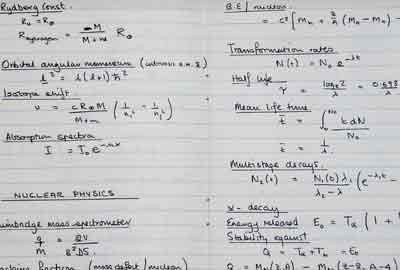 Rydberg Const.
R₀ = R∞
R_Hydrogen = M / M+m R∞
Orbital angular momentum
l² = l(l+1)ℏ²
Isotope shift.
ν = cR∞M / M+m (1/n₁² − 1/n₂²)
Absorption spectra
I = I₀e
NUCLEAR PHYSICS
mass spectrometer
q/m = 2V / B²DS
fraction (mass defect/nucleon)
B.E / nucleon
= c² [Mₙ + (Mₙ − Mₙ) −
Transformation rates.
N(t) = N₀ e^−λt
Half life
τ = log_e 2 / λ = 0.693
Mean life time
t̄ = ∫ t dN / N₀
t̄ = 1/λ
Multistage decays.
N₂(t) = N₁(0) λ₁ / λ₂ − λ₁ (e^−λ₁t −
α - decay
Energy released E₀ = Tα (1 +
Stability against
Q = Tα + T_b = E₀